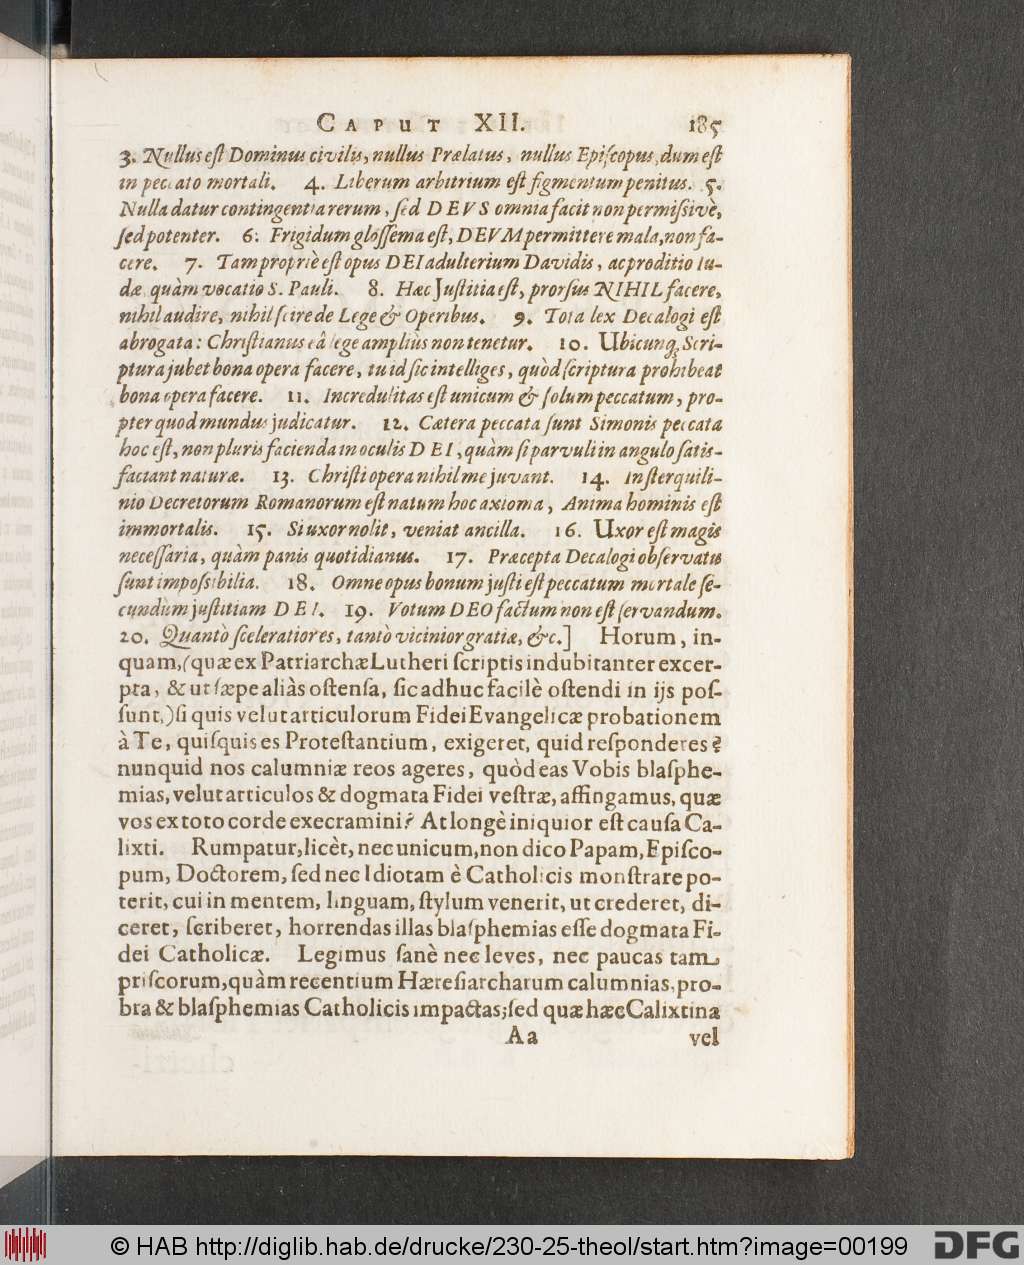 CAPUT XII. 185
3. Nullus eſt Dominus civilis, nullus Prælatus, nullus Epiſcopus, dum eſt
in peccato mortali. 4. Liberum arbitrium eſt figmentum penitus. 5.
Nulla datur contingentia rerum, ſed DEVS omnia facit non permiſſivè,
ſed potenter. 6. Frigidum gloſſema eſt, DEVM permittere mala, non fa-
cere. 7. Tam propriè eſt opus DEI adulterium Davidis, ac proditio Iu-
dæ quàm vocatio S. Pauli. 8. Hæc Juſtitia eſt, prorſus NIHIL facere,
nihil audire, nihil ſcire de Lege & Operibus. 9. Tota lex Decalogi eſt
abrogata: Chriſtianus eâ lege ampliùs non tenetur. 10. Ubicunq; Scri-
ptura jubet bona opera facere, tu id ſic intelliges, quòd ſcriptura prohibeat
bona opera facere. 11. Incredulitas eſt unicum & ſolum peccatum, pro-
pter quod mundus judicatur. 12. Cætera peccata ſunt Simonis peccata
hoc eſt, non pluris facienda in oculis DEI, quàm ſi parvuli in angulo ſatis-
faciant naturæ. 13. Chriſti opera nihil me juvant. 14. In ſterquili-
nio Decretorum Romanorum eſt natum hoc axioma, Anima hominis eſt
immortalis. 15. Si uxor nolit, veniat ancilla. 16. Uxor eſt magis
neceſſaria, quàm panis quotidianus. 17. Præcepta Decalogi obſervatu
ſunt impoſſibilia. 18. Omne opus bonum juſti eſt peccatum mortale ſe-
cundùm juſtitiam DEI. 19. Votum DEO factum non eſt ſervandum.
20. Quantò ſceleratiores, tantò vicinior gratiæ, &c.] Horum, in-
quam, (quæ ex Patriarchæ Lutheri ſcriptis indubitanter excer-
pta, & ut ſæpe aliàs oſtenſa, ſic adhuc facilè oſtendi in ijs poſ-
ſunt,) ſi quis velut articulorum Fidei Evangelicæ probationem
à Te, quiſquis es Proteſtantium, exigeret, quid reſponderes?
nunquid nos calumniæ reos ageres, quòd eas Vobis blaſphe-
mias, velut articulos & dogmata Fidei veſtræ, affingamus, quæ
vos ex toto corde execramini? At longè iniquior eſt cauſa Ca-
lixti. Rumpatur, licèt, nec unicum, non dico Papam, Epiſco-
pum, Doctorem, ſed nec Idiotam è Catholicis monſtrare po-
terit, cui in mentem, linguam, ſtylum venerit, ut crederet, di-
ceret, ſcriberet, horrendas illas blaſphemias eſſe dogmata Fi-
dei Catholicæ. Legimus ſanè nec leves, nec paucas tam
priſcorum, quàm recentium Hæreſiarcharum calumnias, pro-
bra & blaſphemias Catholicis impactas; ſed quæ hæc Calixtina
Aa vel
© HAB http://diglib.hab.de/drucke/230-25-theol/start.htm?image=00199 DFG